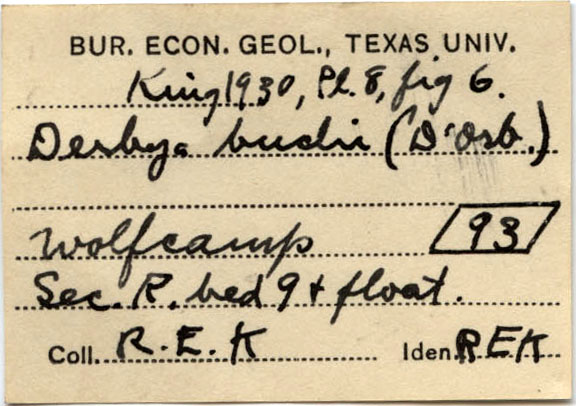 BUR. ECON. GEOL., TEXAS UNIV.
King 1930, Pl. 8, fig 6.
Derbya buchi (D'Orb.)
Wolfcamp 93
Sec. R. bed 9 + float.
Coll. R.E.K Iden. REK